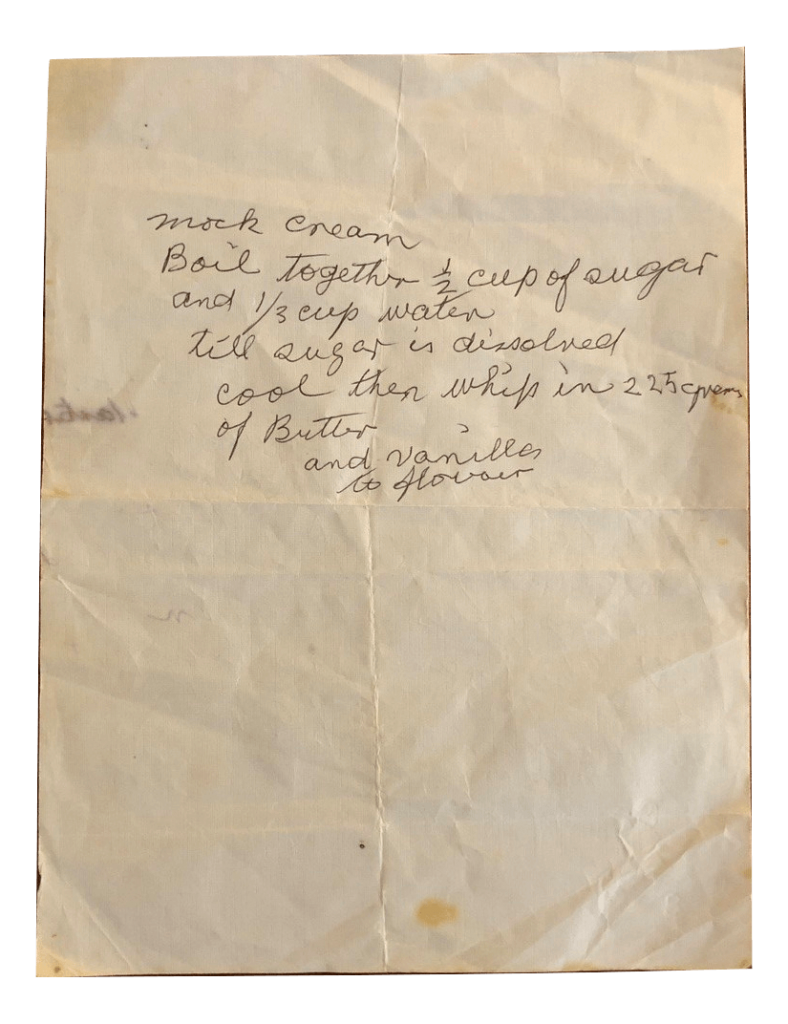 mock cream
Boil together 1/2 cup of sugar
and 1/3 cup water
till sugar is dissolved
cool then whip in 225 grms
of Butter
and vanilla
to flovour